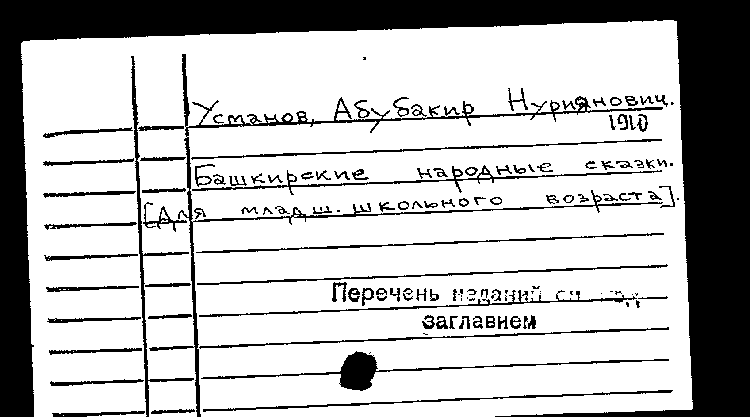 Усманов, Абубакир Нуриянович.
1910
Башкирские народные сказки.
[Для младш. школьного возраста].
Перечень изданий см. под
заглавием